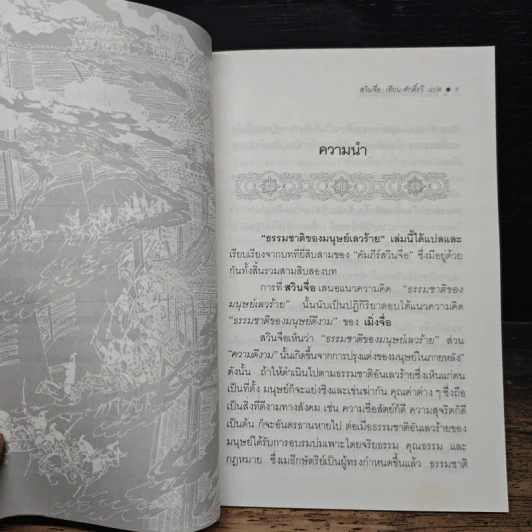 สวินจื่อ : เขียน ศักดิ์วี แปล ● 9
ความนำ
"ธรรมชาติของมนุษย์เลวร้าย" เล่มนี้ได้แปลและ
เรียบเรียงจากบทที่ยี่สิบสามของ "คัมภีร์สวินจื่อ" ซึ่งมีอยู่ด้วย
กันทั้งสิ้นรวมสามสิบสองบท
การที่ สวินจื่อ เสนอแนวความคิด "ธรรมชาติของ
มนุษย์เลวร้าย" นั้นนับเป็นปฏิกิริยาตอบโต้แนวความคิด
"ธรรมชาติของมนุษย์ดีงาม" ของ เมิ่งจื่อ
สวินจื่อเห็นว่า "ธรรมชาติของมนุษย์เลวร้าย" ส่วน
"ความดีงาม" นั้นเกิดขึ้นจากการปรุงแต่งของมนุษย์ในภายหลัง"
ดังนั้น ถ้าให้ดำเนินไปตามธรรมชาติอันเลวร้ายซึ่งเห็นแก่ตน
เป็นที่ตั้ง มนุษย์ก็จะแย่งชิงและเข่นฆ่ากัน คุณค่าต่าง ๆ ซึ่งถือ
เป็นสิ่งที่ดีงามทางสังคม เช่น ความซื่อสัตย์ก็ดี ความสุจริตก็ดี
เป็นต้น ก็จะอันตรธานหายไป ต่อเมื่อธรรมชาติอันเลวร้ายของ
มนุษย์ได้รับการอบรมบ่มเพาะโดยจริยธรรม คุณธรรม และ
กฎหมาย ซึ่งเมธีกษัตริย์เป็นผู้ทรงกำหนดขึ้นแล้ว ธรรมชาติ